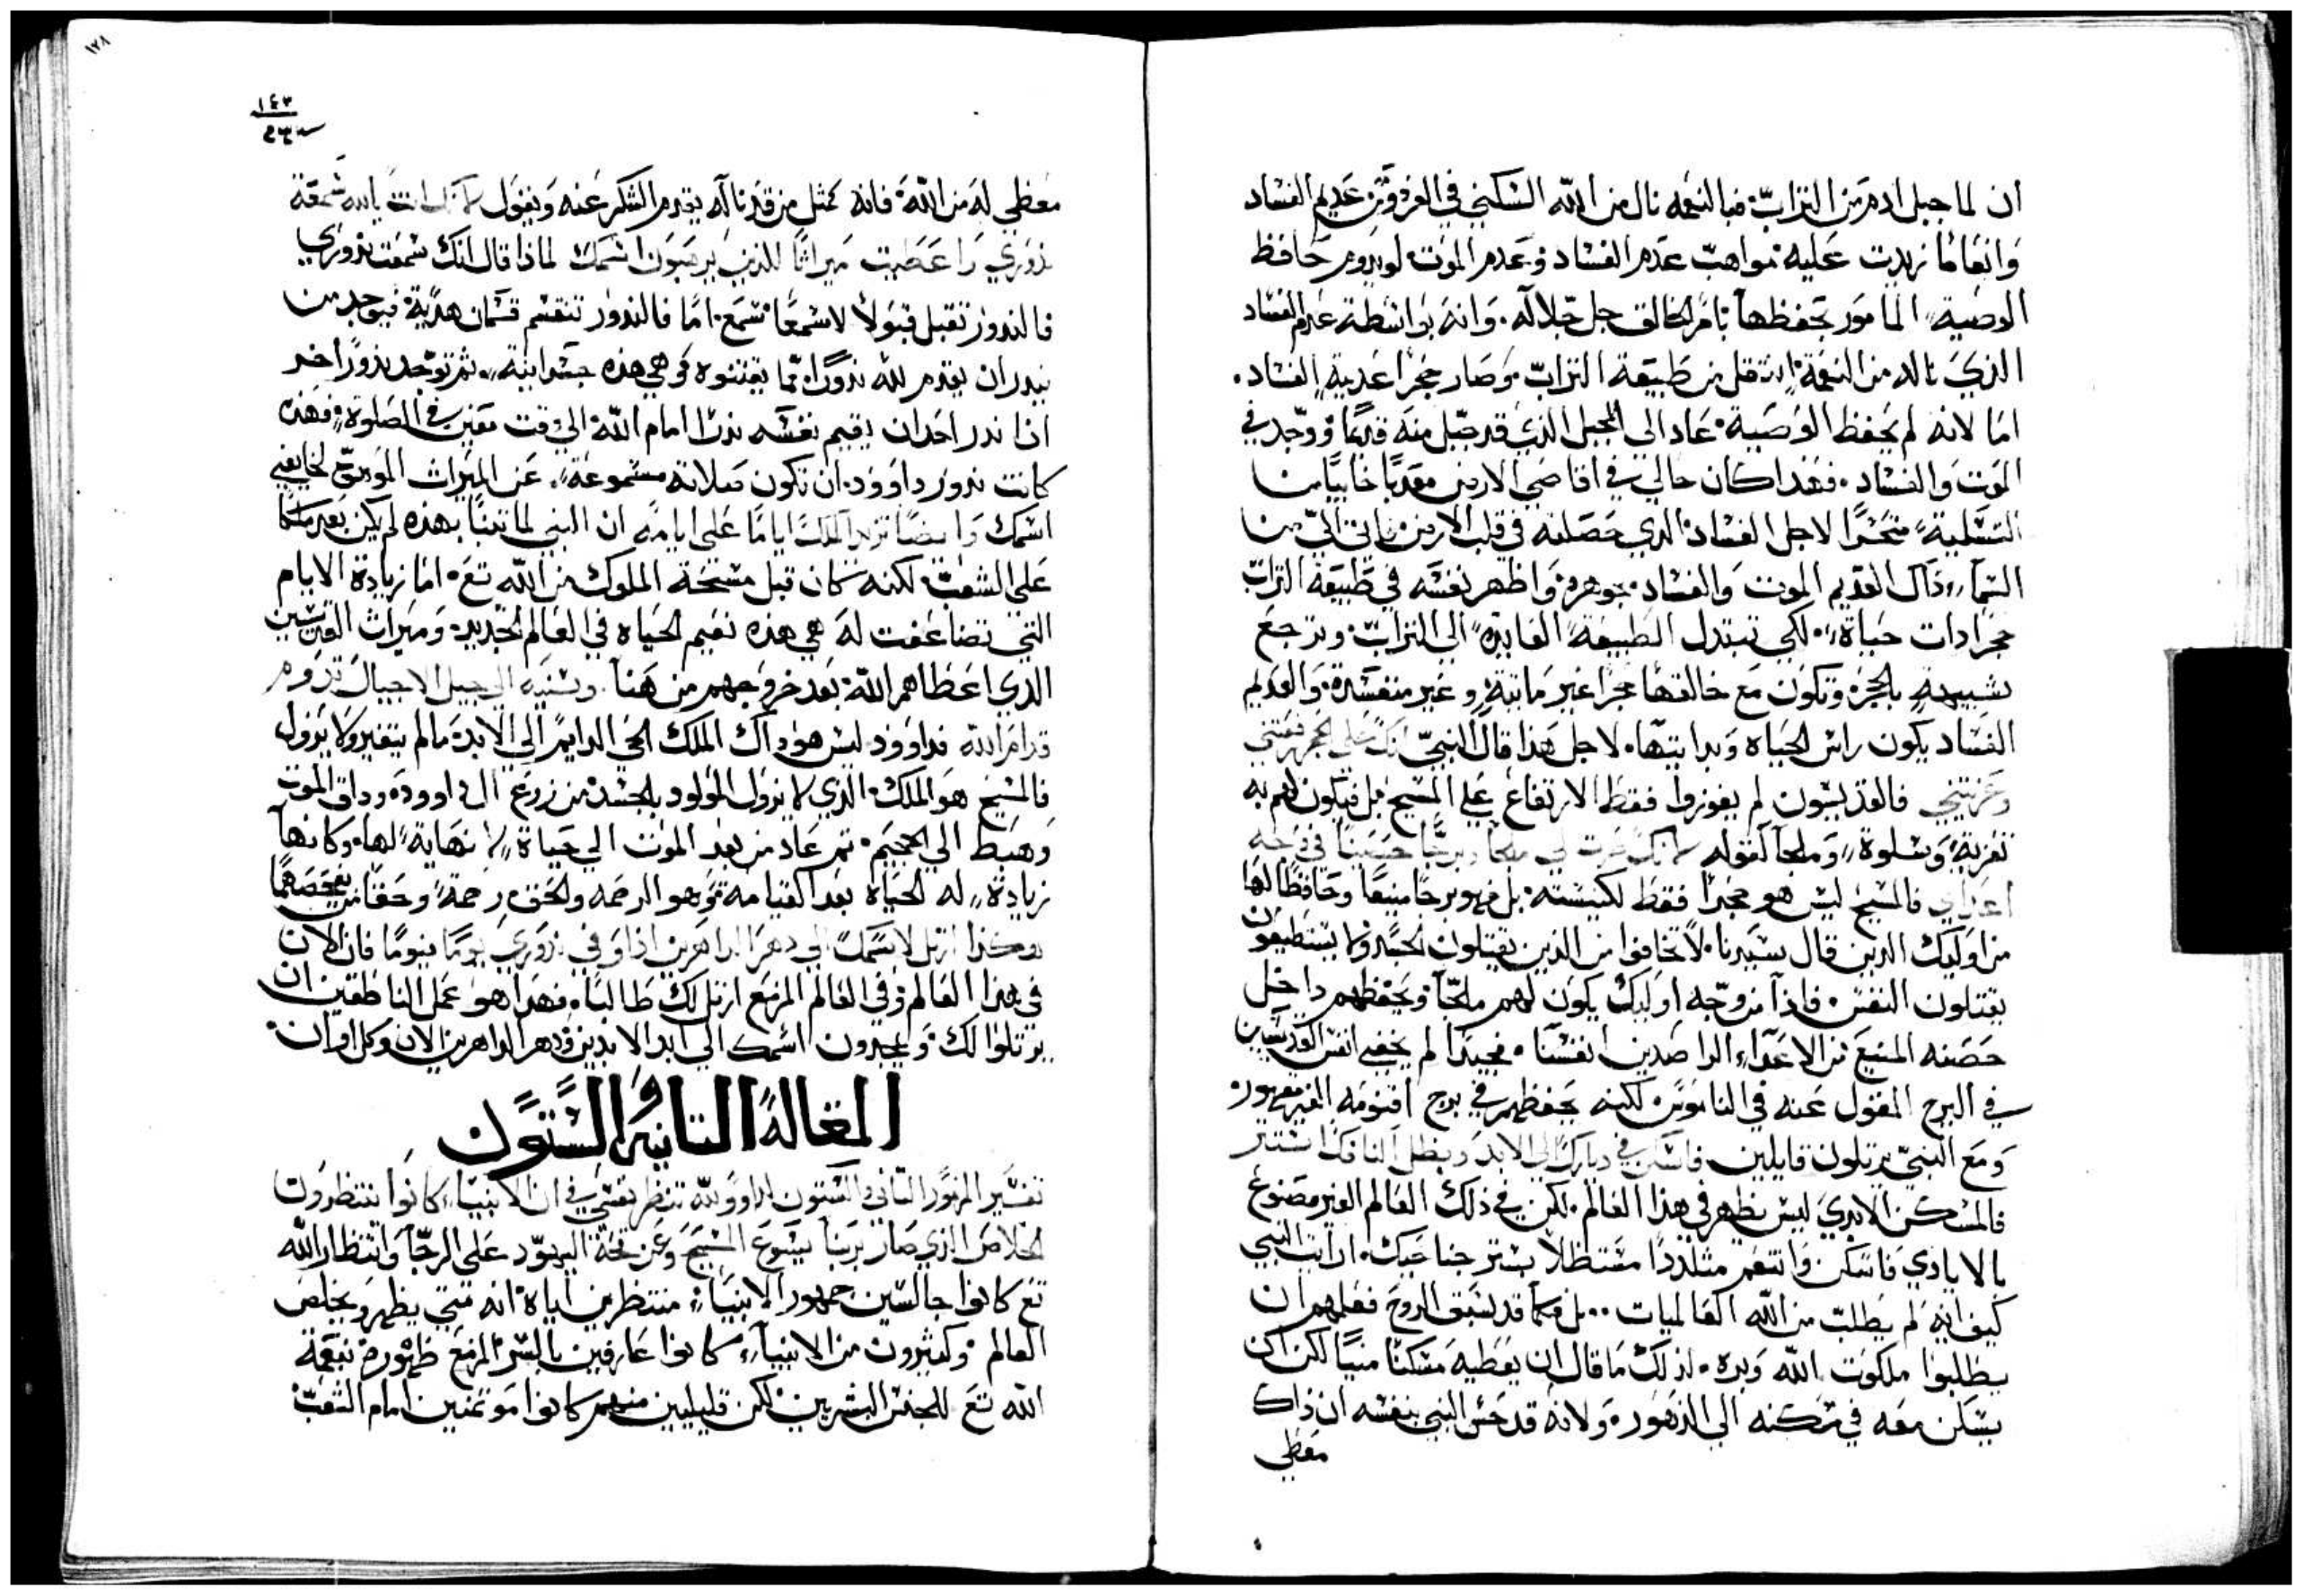 ان لما جبل ادم من التراب. فبالنعمه نال من الله السكني في الفردوس عديم الفساد
وانعاما زيدت عليه مواهب عدم الفساد وعدم الموت لو يدوم حافظ
الوصية المامور بحفظها بامر الخالق جل جلاله. وانه بواسطة عدم الفساد
الذي ناله من النعمة انتقل من طبيعة التراب وصار حجرا عديم الفساد.
اما لانه لم يحفظ الوصية عاد الي الجبل الذي قد جبل منه قديما ووجد في
الموت والفساد. فهذا كان حالي في اقاصي الارض معذبا خايبا من
التسلية متحسرا لاجل الفساد الذي حصلته في قلب الارض. فاتي الي من
السما ذاك العديم الموت والفساد بجوهره واظهر نفسه في طبيعة التراب
حجرا ذات حياة. لكي تبتدل الطبيعة العايدة الي التراب. وترجع
شبيهة بالحجر وتكون مع خالقها حجرا غير مايتة وغير منفسدة. والعديم
الفساد يكون راس الحياة وبدايتها. لاجل هذا قال النبي انك علي الحجر رفعتني
وعزيتني فالقديسون لم يفوزوا فقط الارتفاع علي المسيح بل فيكون لهم به
تعزية وسلوة وملجا لقوله لانك صرت لي ملجا وبرجا حصينا في وجه
اعداي فالمسيح ليس هو حجرا فقط لكنيسته. بل فهو برجا منيعا وحافظا لها
من اوليك الذين قال سيدنا. لا تخافوا من الذين يقتلون الجسد ولا يستطيعون
يقتلون النفس. فاذا من وجه اوليك يكون لهم ملجا ويحفظهم داخل
حصنه المنيع من الاعداء الراصدين انفسنا. فحيدا لم يخفي انفس القديسين
في البرج المقول عنه في الناموس. لكنه يحفظهم في برج اقنومه الغير مقهور.
ومع النبي يرتلون قايلين. فاسكن في ديارك الي الابد ويظل النا فكا استتر
فالمسكن الابدي ليس يظهر في هذا العالم. لكن في ذلك العالم الغير مصنوع
بالايادي فاسكن واتنعم متلددا مستظلا بستر جناحيك. ارايت النبي
كيف انه لم يطلب من الله العالميات .. بل فكما قد سبق الروح فعلمهم ان
يطلبوا ملكوت الله وبره. لذلك ما قال ان يعطيه مسكنا منيا لكن اكن
يسكن معه في مسكنه الي الدهور. ولانه قد حس النبي بنفسه ان ذاك
معطي
١٢٨
١٤٣
معطي له من الله. فانه كمثل من قد ناله يقدم الشكر عنه ويقول لانك انت يا الله سمعت
نذوري واعطيت ميراثا للذين يرهبون اسمك لماذا قال انك سمعت نذوري
فالنذور تقبل قبولا لا سمعا تسمع. اما فالنذور تنقسم قسمان هدية فيوجد من
ينذر ان يقدم لله نذورا مما يقتنوه وهي هذه جسدانية. ثم توجد نذورا اخر
اذا نذر احد ان يقيم نفسه نذرا امام الله الي وقت معين في الصلوة فهذه
كانت نذور داوود. ان تكون صلاته مسموعة. عن الميراث الموهب لخايفي
اسمك وايضا تزيد الملك اياما علي ايامه ان النبي لما تنبا بهذه لم يكن بعد ملكا
علي الشعب. لكنه كان قبل مسحة الملوك من الله تع. اما زيادة الايام
التي تضاعفت له هي هذه نعيم الحياة في العالم الجديد. وميراث القديسين
الذي اعطاهم الله بعد خروجهم من هنا. وسنيه الي جيل الاجيال تدوم
قدام الله فداوود ليس هو ذاك الملك الحي الدايم الي الابد. ما لم يتغير ولا يزول
فالمسيح هو الملك الذي لا يزول المولود بالجسد من زرع ال داوود وذاق الموت
وهبط الي الجحيم. ثم عاد من بعد الموت الي حياة لا نهاية لها. وكانها
زيادة له الحياة بعد القيامة وهو الرحمه والحق رحمة وحقا من يفحصهما
هكذا ارتل لاسمك الي دهر الداهرين اذ اوفي نذوري يوما فيوما فان الان
في هذا العالم وفي العالم المزمع ارتل لك طالبا. فهذا هو عمل الناطقين ان
يرتلوا لك ويمجدون اسمك الي ابد الابدين ودهر الداهرين الان وكل اوان.
المقالة الثانية والستون
تفسير المزمور الثاني والستون لداوود لله تنظر نفسي في ان الانبياء كانوا ينتظرون
الخلاص الذي صار بربنا يسوع المسيح وعن قحة اليهود علي الرجا وانتظار الله
تع كانوا جالسين جمهور الانبياء منتظرين اياه انه متي يظهر ويخلص
العالم. وكثيرون من الانبياء كانوا عارفين بالسر المزمع ظهوره بنعمة
الله تع للجنس البشريين لكن قليلين منهم كانوا موتمنين امام الشعب